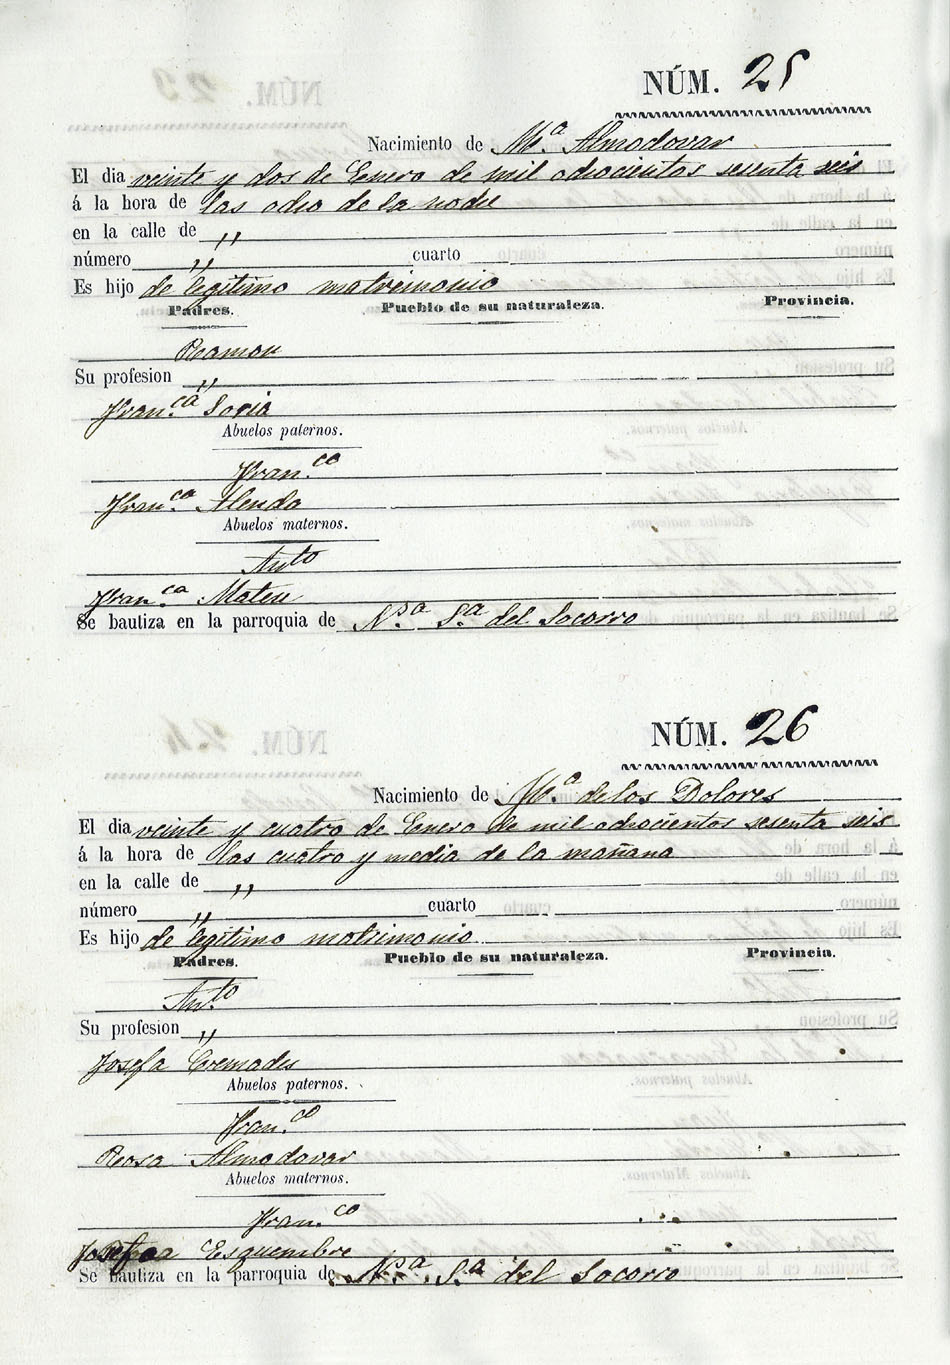 NÚM. 25
Nacimiento de M.ª Almodovar
El dia veinte y dos de Enero de mil ochocientos sesenta seis
á la hora de las ocho de la noche
en la calle de "
número " cuarto
Es hijo de legitimo matrimonio
Padres. Pueblo de su naturaleza. Provincia.
Ramon
Su profesion "
Fran.ca Soria
Abuelos paternos.
Fran.co
Fran.ca Alenda
Abuelos maternos.
Ant.o
Fran.ca Mateu
Se bautiza en la parroquia de N.ª S.ª del Socorro
NÚM. 26
Nacimiento de M.ª de los Dolores
El dia veinte y cuatro de Enero de mil ochocientos sesenta seis
á la hora de las cuatro y media de la mañana
en la calle de "
número " cuarto
Es hijo de legitimo matrimonio
Padres. Pueblo de su naturaleza. Provincia.
Ant.o
Su profesion "
Josefa Cremades
Abuelos paternos.
Fran.co
Rosa Almodovar
Abuelos maternos.
Fran.co
Josefa Esquembre
Se bautiza en la parroquia de N.ª S.ª del Socorro